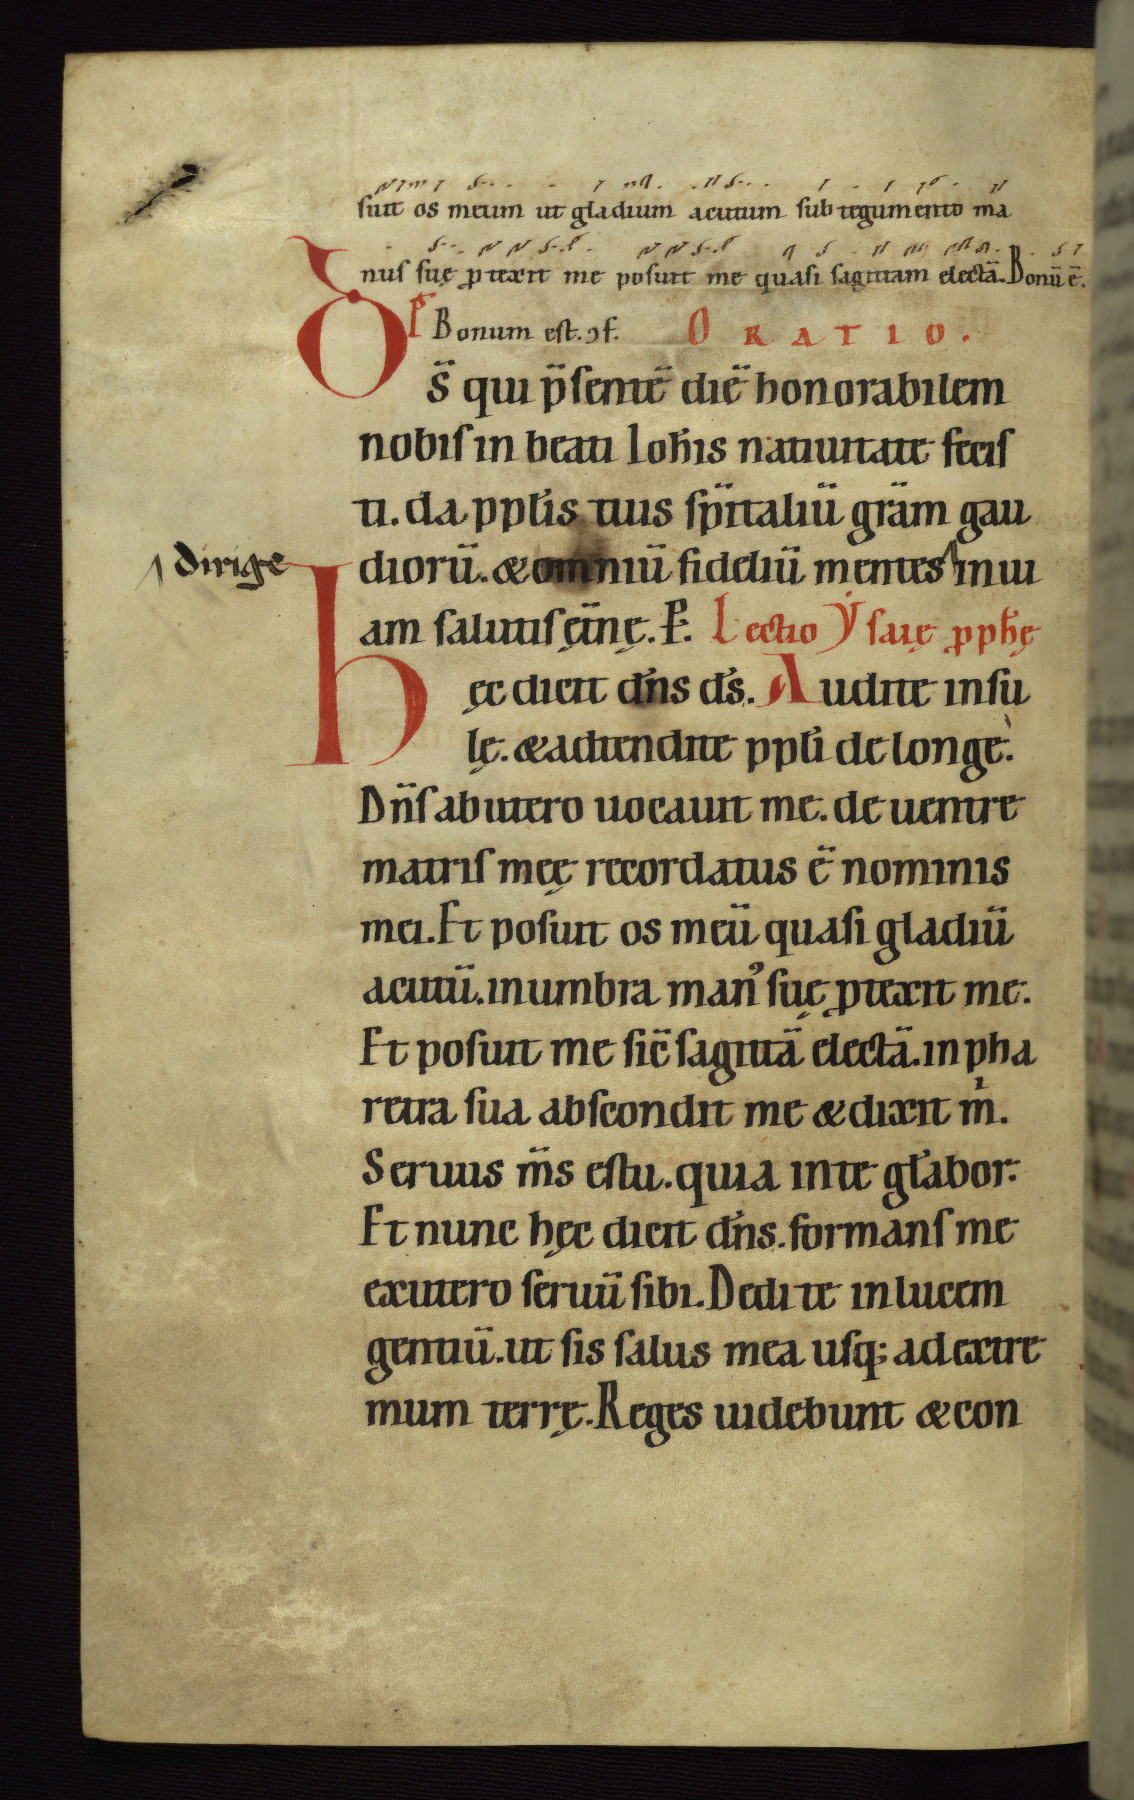 suit os meum ut gladium acutum sub tegumento ma
nus suę ptexit me posuit me quasi sagittam electā. Bonū ē.
Ps Bonum est. ↄf. ORATIO.
Ds̄ qui p̄sentē diē honorabilem
nobis in beati Ioh̄is natiuitate fecis
ti. da pplis tuis sp̄italiū grām gau
diorū. & omniū fideliū mentes in ui
dirige
am salutis ęt̄nę. P. Lectio Ysaię pph̄ę
Hęc dicit dn̄s ds̄. Audite insu
lę. & adtendite ppli de longe.
Dn̄s ab utero uocauit me. de uentre
matris meę recordatus ē nominis
mei. Et posuit os meū quasi gladiū
acutū. in umbra man᾽ suę ptexit me.
Et posuit me sic̄ sagittā electā. in pha
retra sua abscondit me & dixit m̄.
Seruus m̄s es tu. quia in te gl̄abor.
Et nunc hęc dicit dn̄s. formans me
ex utero seruū sibi. Dedi te in lucem
gentiū. ut sis salus mea usq; ad extre
mum terrę. Reges uidebunt & con